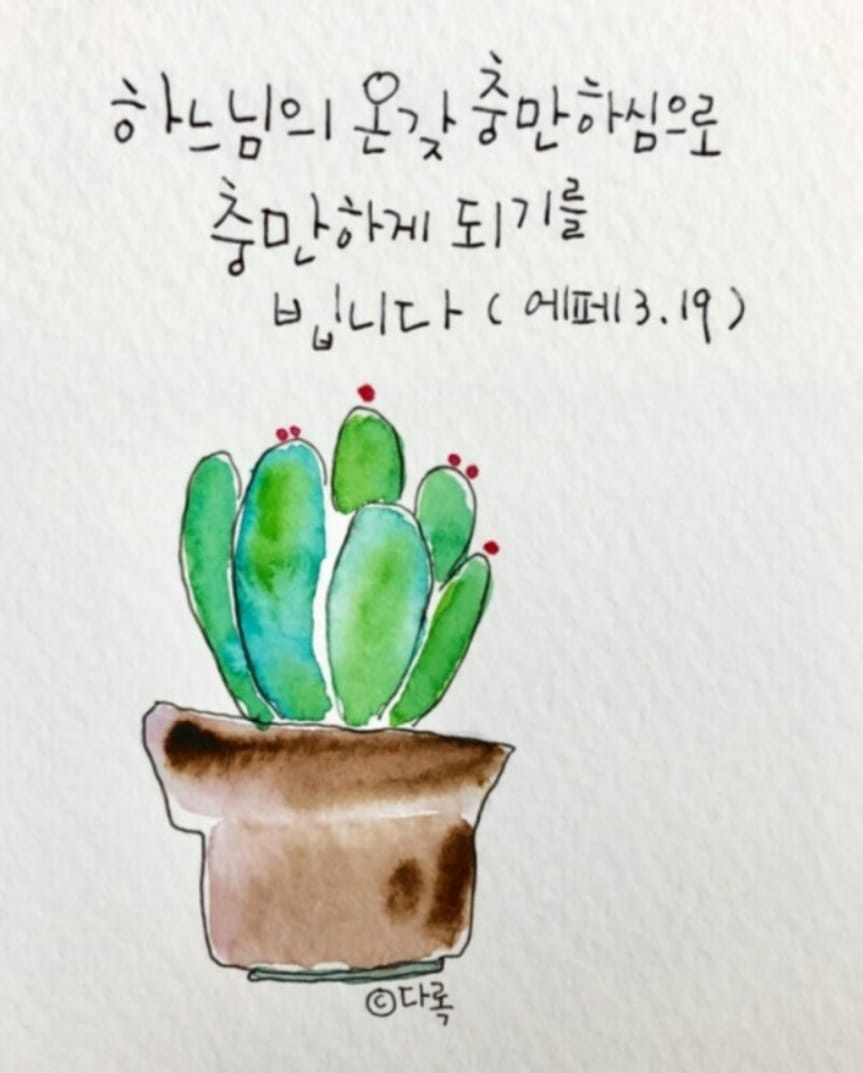 하느님의 온갖 충만하심으로
충만하게 되기를
빕니다 (에페 3.19)
©다록